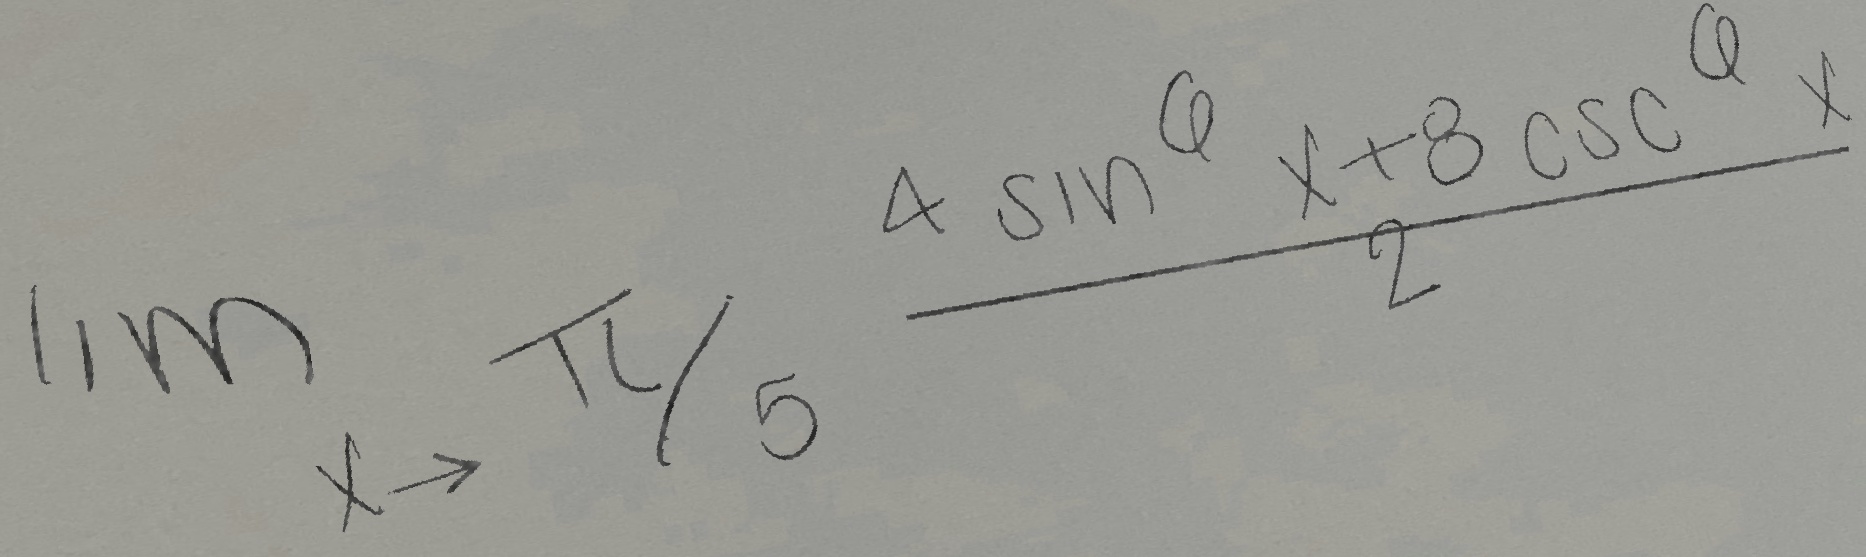 lim_{x→π/5} \frac{4 sin^6 x+8 csc^6 x}{2}